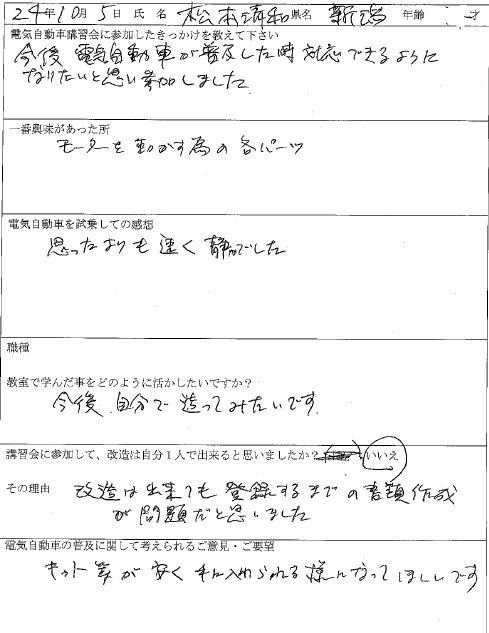 24年10月5日 氏名 松本靖和 県名 新潟 年齢 才
電気自動車講習会に参加したきっかけを教えて下さい
今後 電気自動車が普及した時 対応できるように
なりたいと思い参加しました
一番興味があった所
モーターを動かす為の各パーツ
電気自動車を試乗しての感想
思ったよりも速く静かでした
職種
教室で学んだ事をどのように活かしたいですか?
今後、自分で造ってみたいです。
講習会に参加して、改造は自分1人で出来ると思いましたか? いいえ
その理由 改造は出来ても登録するまでの書類作成
が問題だと思いました
電気自動車の普及に関して考えられるご意見・ご要望
キット等が安く手に入れられる様になってほしいです